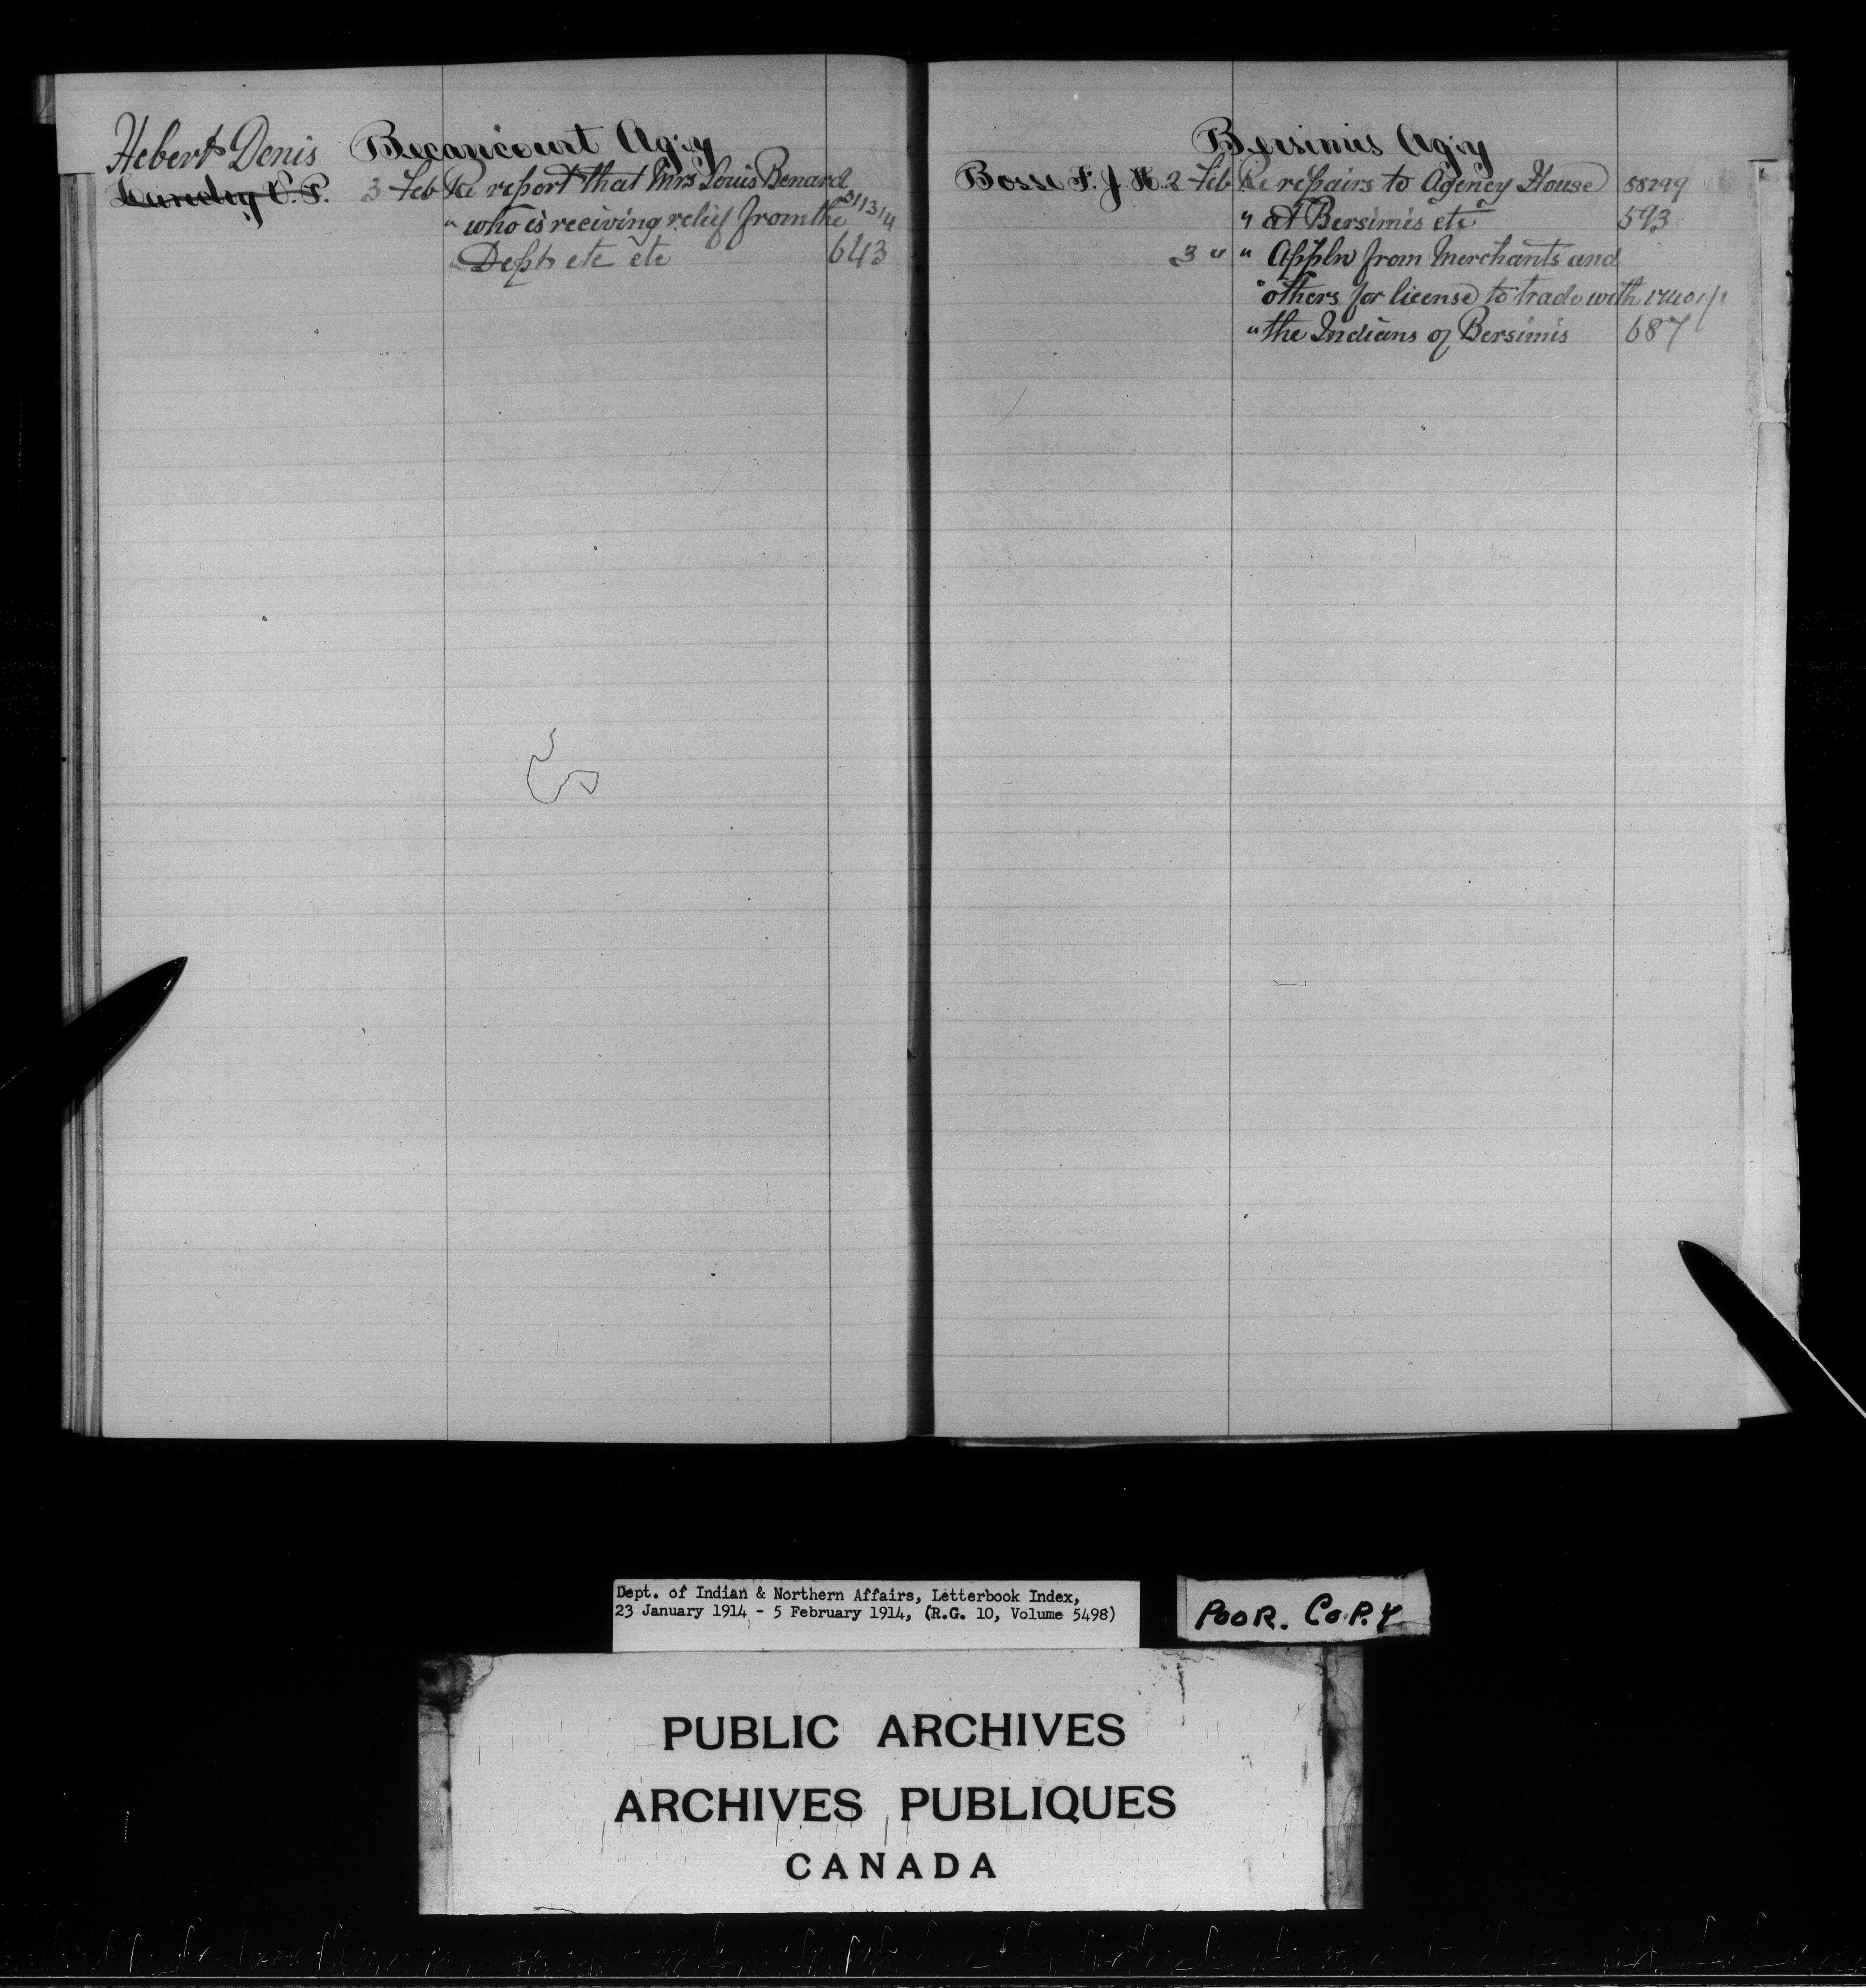 Becancourt Ag'y
Hebert Denis
Landry V. P. 3 Feb Re report that Mrs Louis Benard
" who is receiving relief from the 311314
" Dept etc etc 643
Bersimis Ag'y
Bosse F. J. H. 2 Feb Re repairs to Agency House 58299
" at Bersimis etc 593
3 " " Appln from Merchants and
" others for license to trade with
" the Indians of Bersimis 687
Dept. of Indian & Northern Affairs, Letterbook Index,
23 January 1914 - 5 February 1914, (R.G. 10, Volume 5498)
POOR. COPY
PUBLIC ARCHIVES
ARCHIVES PUBLIQUES
CANADA